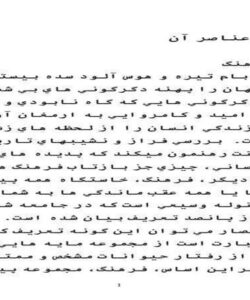 عناصر آن
هنگ
ام تیره و هوس آلود سده بیستم
هان را پهنه دگرگونی های بی شم
دگرگونی هایی که گاه نابودی و
امید و کامروایی به ارمغان آو
ندگی انسان را از لحظه های زی
. بررسی فراز و نشیبهای تاری
ت رهنمون میکند که پدیده های
سانی، چیزی جز بازتاب فرهنگ ها
دیگر، فرهنگ، خاستگاه همه پیش
ا یا همه عقب ماندگی ها به شما
قوله وسیعی است که در جامعه شن
از پانصد تعریف بیان شده است.
صار می توان این گونه تعریف ک
بارت است از مجموعه مایه هایی
ا از رفتار حیوانات مشخص و ممتا
راین اساس، فرهنگ، مجموعه پی
1